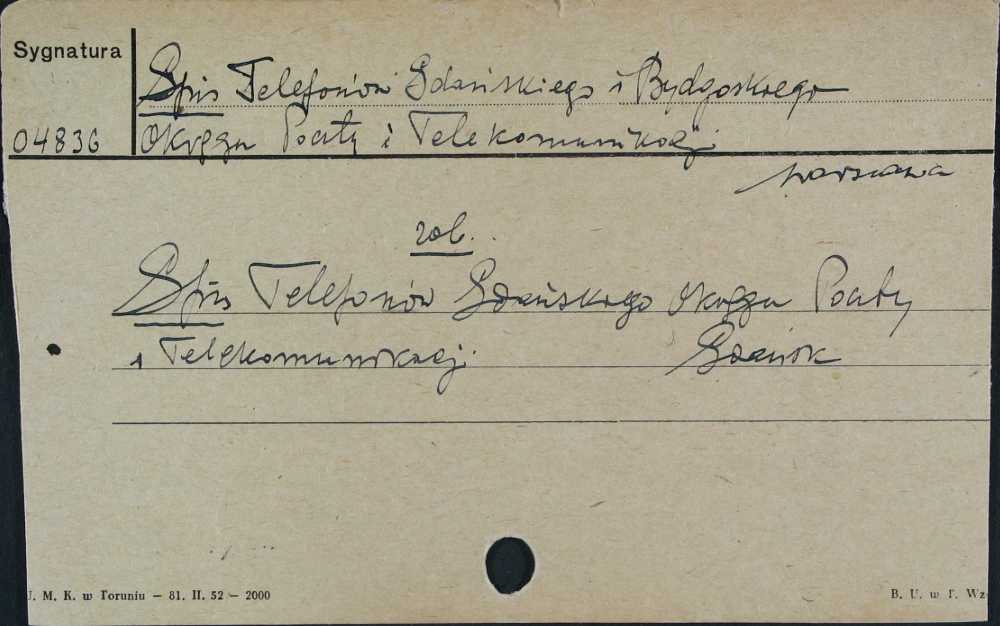 Sygnatura
Spis Telefonów Gdańskiego i Bydgoskiego
04836 Okręgu Poczty i Telekomunikacji
Warszawa
zob.
Spis Telefonów Gdańskiego Okręgu Poczty
i Telekomunikacji Gdańsk
J. M. K. w Toruniu — 81. II. 52 — 2000 B. U. w T. Wz